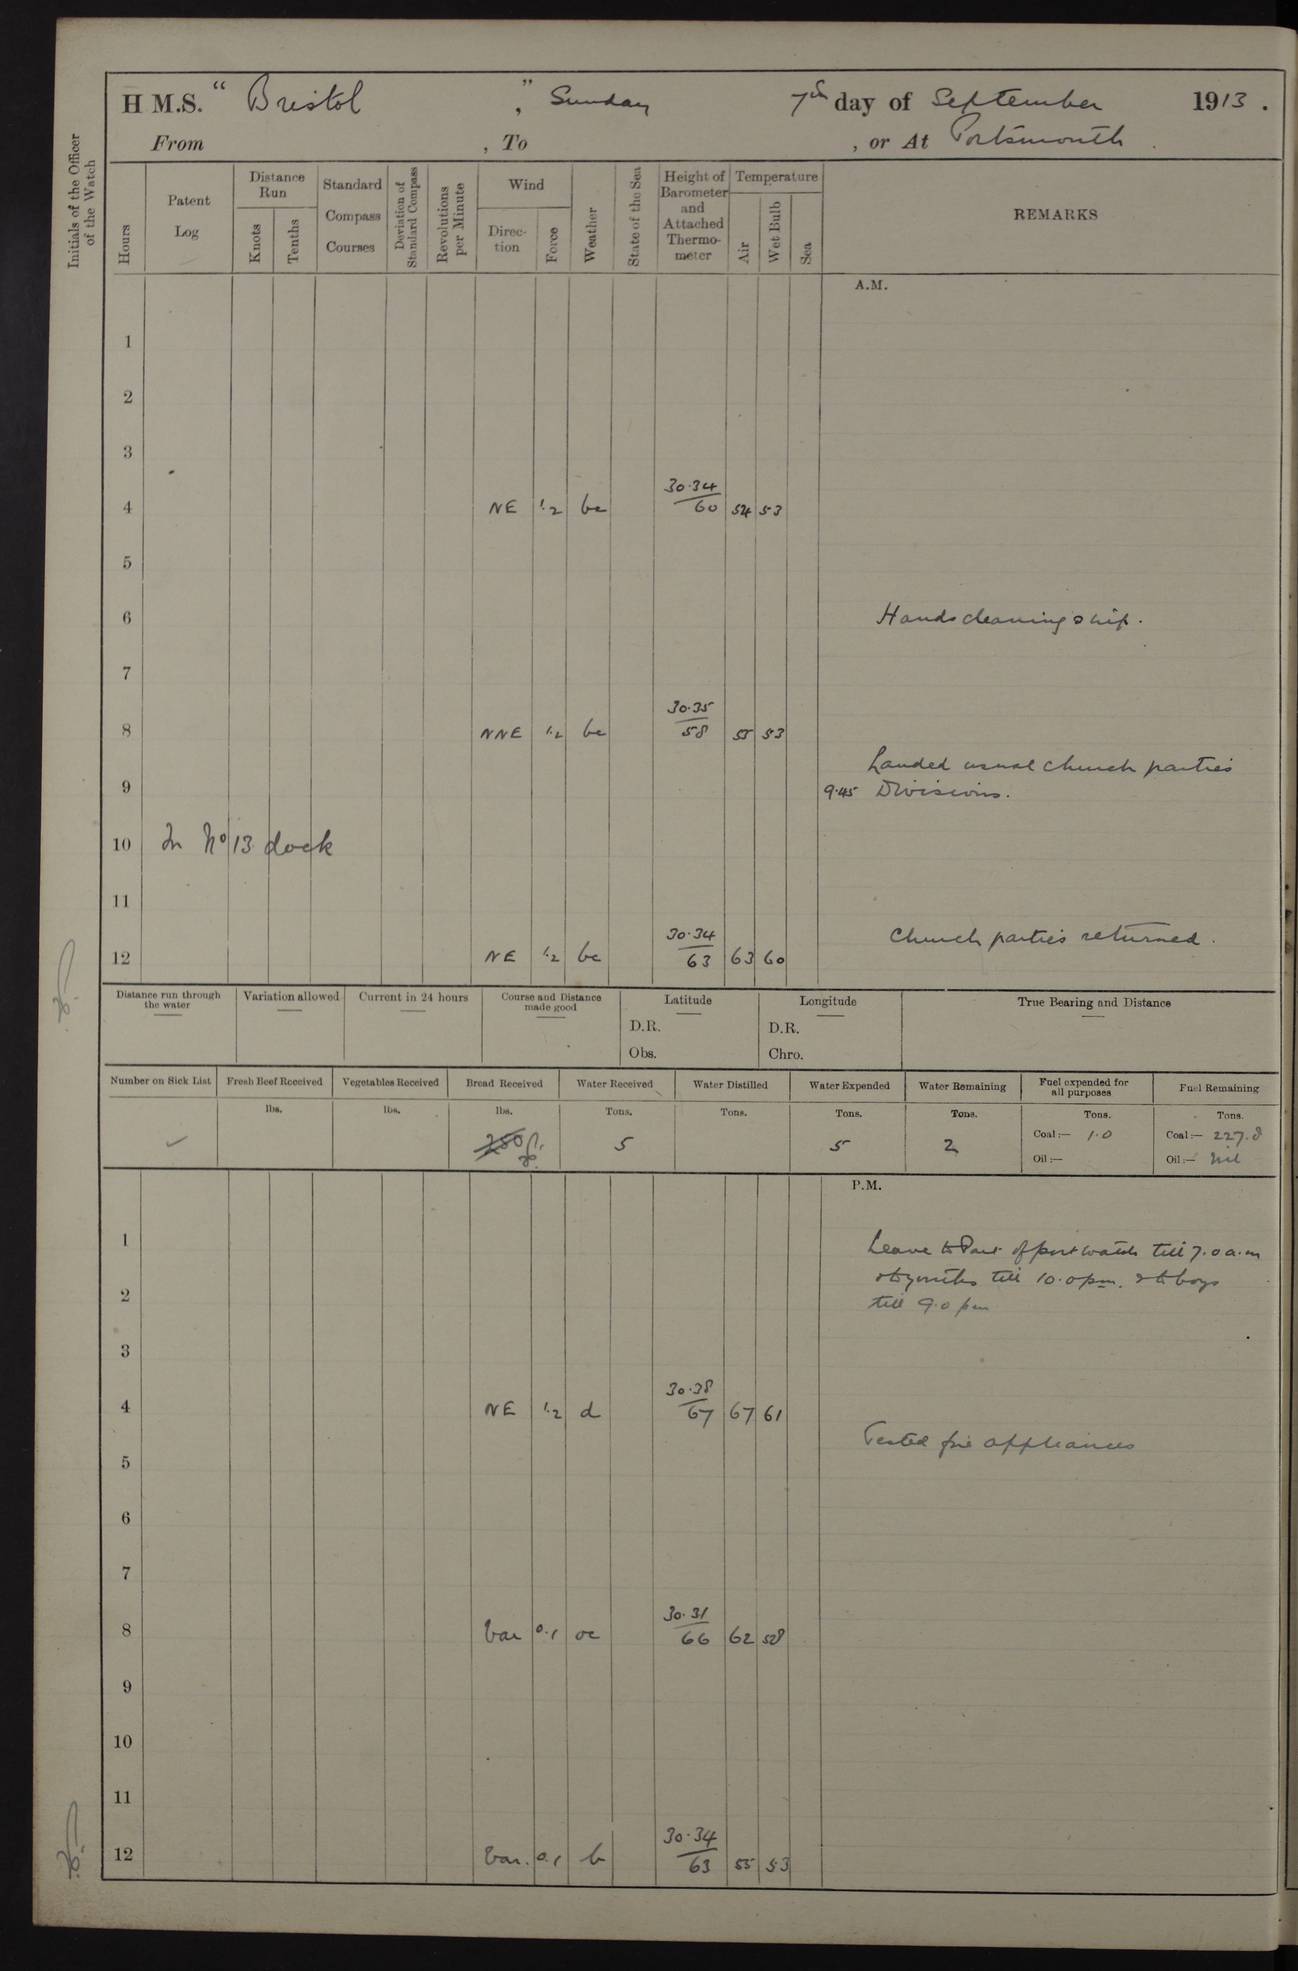 H M.S. " Bristol ," Sunday 7th day of September 1913.
From , To , or At Portsmouth.
Initials of the Officer of the Watch
Hours
Patent Log
Distance Run
Knots
Tenths
Standard Compass Courses
Deviation of Standard Compass
Revolutions per Minute
Wind
Direction
Force
Weather
State of the Sea
Height of Barometer and Attached Thermometer
Temperature
Air
Wet Bulb
Sea
REMARKS
A.M.
1
2
3
4 NE 1.2 bc 30.34/60 54 53
5
6 Hands cleaning ship.
7
8 NNE 1.2 bc 30.35/58 55 53
Landed usual church parties
9 9.45 Divisions.
10 In No 13 dock
11
Church parties returned.
12 NE 1.2 bc 30.34/63 63 60
Distance run through the water
Variation allowed
Current in 24 hours
Course and Distance made good
Latitude
D.R.
Obs.
Longitude
D.R.
Chro.
True Bearing and Distance
Number on Sick List
Fresh Beef Received lbs.
Vegetables Received lbs.
Bread Received lbs. 250
Water Received Tons. 5
Water Distilled Tons.
Water Expended Tons. 5
Water Remaining Tons. 2
Fuel expended for all purposes Tons.
Coal:— 1.0
Oil:—
Fuel Remaining Tons.
Coal:— 227.8
Oil:— Nil
P.M.
1 Leave to Part of port watch till 7.0 a.m
2 till 10.0 pm. & to boys
till 9.0 pm
3
4 NE 1.2 d 30.38/67 67 61
Tested fire appliances
5
6
7
8 Var 0.1 oc 30.31/66 62 58
9
10
11
12 Var. 0.1 b 30.34/63 55 53